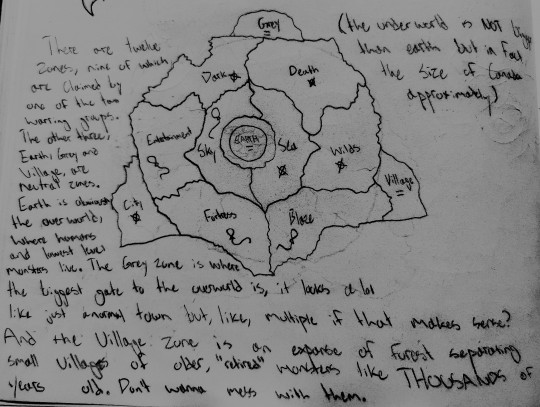 There are twelve
Zones, nine of which
are claimed by
one of the two
warring groups.
The other three,
Earth, Grey and
Village, are
neutral zones.
Earth is obviously
the overworld,
where humans
and lowest level
monsters live. The Grey zone is where
the biggest gate to the overworld is, it looks a lot
like just a normal town but, like, multiple if that makes sense?
And the Village Zone is an expanse of forest separating
small villages of older, "retired" monsters like THOUSANDS of
years old. Don't wanna mess with them.
(the underworld is NOT bigger
than earth but in fact
the size of Canada
approximately)
Grey
Dark
Death
Entertainment
Sky
EARTH
Sea
Wilds
Village
City
Fortress
Blaze